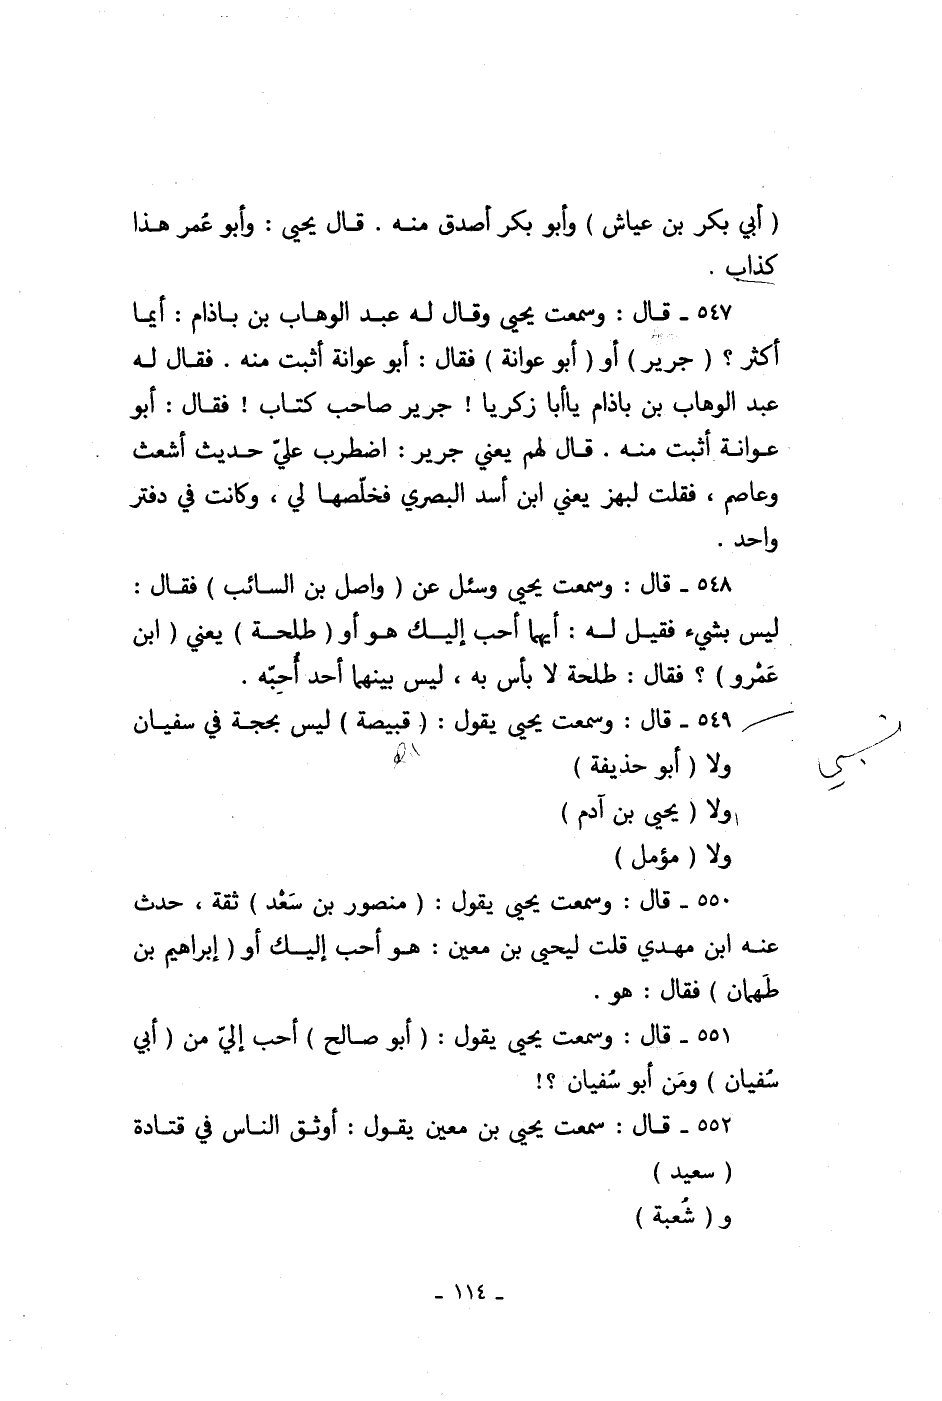 ( أبي بكر بن عياش ) وأبو بكر أصدق منه . قال يحيى : وأبو عُمر هذا
كذاب .
٥٤٧ ـ قال : وسمعت يحيى وقال له عبد الوهاب بن باذام : أيما
أكثر ؟ ( جرير ) أو ( أبو عوانة ) فقال : أبو عوانة أثبت منه . فقال له
عبد الوهاب بن باذام ياأبا زكريا ! جرير صاحب كتاب ! فقال : أبو
عوانة أثبت منه . قال لهم يعني جرير : اضطرب عليّ حديث أشعث
وعاصم ، فقلت لبهز يعني ابن أسد البصري فخلّصها لي ، وكانت في دفتر
واحد .
٥٤٨ ـ قال : وسمعت يحيى وسئل عن ( واصل بن السائب ) فقال :
ليس بشيء فقيل له : أيهما أحب إليك هو أو ( طلحة ) يعني ( ابن
عَمْرو ) ؟ فقال : طلحة لا بأس به ، ليس بينهما أحد أُحبّه .
٥٤٩ ـ قال : وسمعت يحيى يقول : ( قبيصة ) ليس بحجة في سفيان
ولا ( أبو حذيفة )
ولا ( يحيى بن آدم )
ولا ( مؤمل )
٥٥٠ ـ قال : وسمعت يحيى يقول : ( منصور بن سَعْد ) ثقة ، حدث
عنه ابن مهدي قلت ليحيى بن معين : هو أحب إليك أو ( إبراهيم بن
طَهمان ) فقال : هو .
٥٥١ ـ قال : وسمعت يحيى يقول : ( أبو صالح ) أحب إليّ من ( أبي
سُفيان ) ومَن أبو سُفيان ؟!
٥٥٢ ـ قال : سمعت يحيى بن معين يقول : أوثق الناس في قتادة
( سعيد )
و ( شُعبة )
ـ ١١٤ ـ